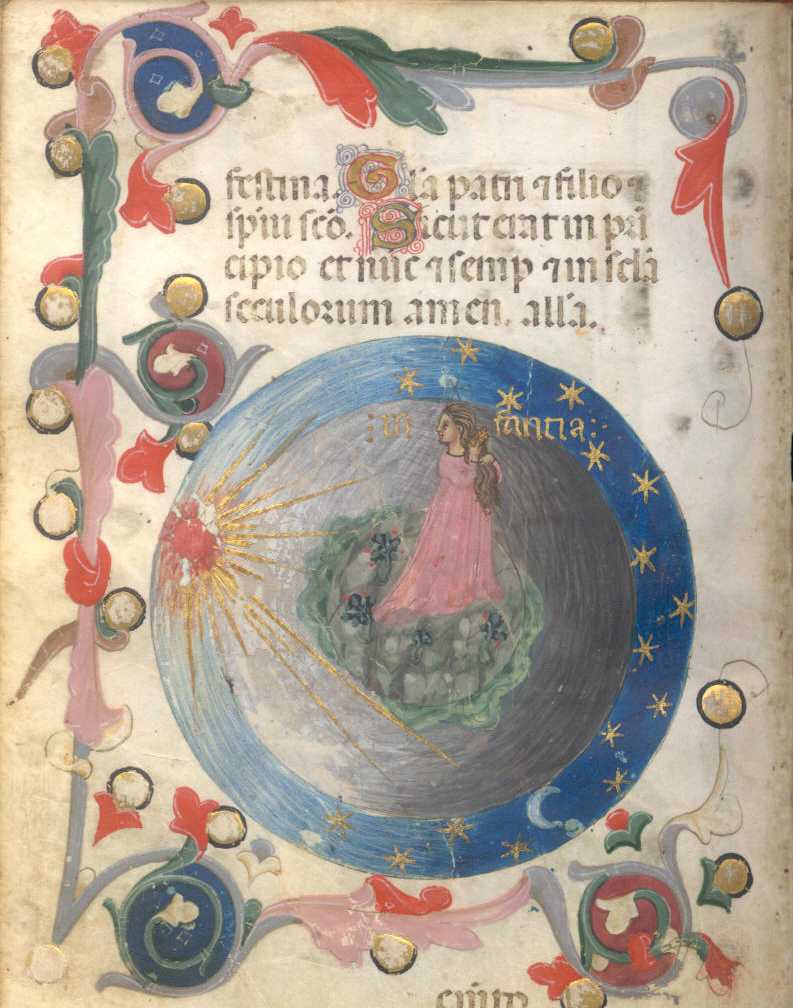 festina. Gl'a patri ⁊ filio ⁊
sp̄iu sc̄o. Sicut erat in pri
cipio et nūc ⁊ semp ⁊ in sc̄la
seculorum amen. all'a.
: in fantia :